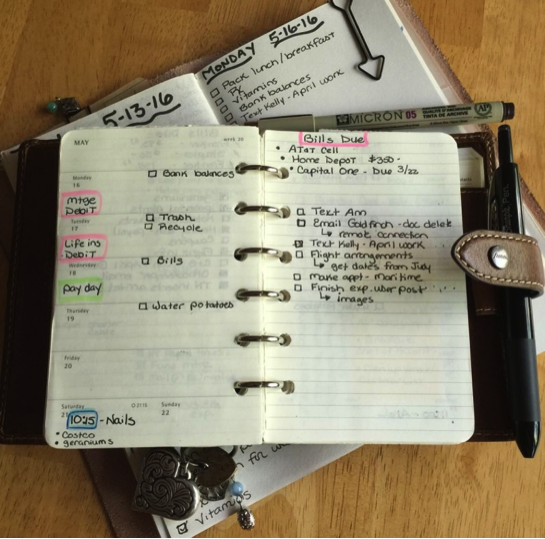 MONDAY 5-16-16
Pack lunch/breakfast
Rx
Vitamins
Bank balances
Text Kelly - April work
5-13-16
MICRON 05
AP
MAY
WEEK 20
Monday
16
Bank balances
mtge
Debit
Tuesday
17
Trash
Recycle
Life ins
Debit
Wednesday
18
Bills
pay day
Thursday
19
Water potatoes
Friday
20
Saturday
21
Sunday
22
10:15 - Nails
• Costco
• geraniums
Bills Due
• AT&T Cell
• Home Depot $350-
• Capital One - Due 3/22
Text Ann
Email Goldfinch - doc delete
↳ remote connection
Text Kelly - April work
Flight arrangements
↳ get dates from Judy
make appt - maritime
Finish exp. user post
↳ images
Vitamins